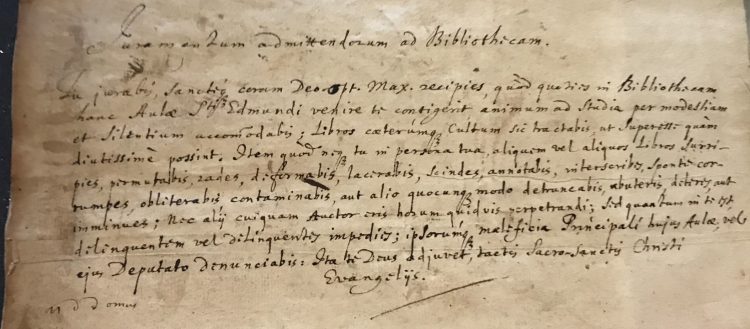 Juramentum admittendorum ad Bibliothecam.
Tu jurabis, Sanctéq coram Deo Opt. Max. recipies, quòd quoties in Bibliothecam
hanc Aulæ Sti Edmundi venire te contigerit animum ad Studia per modestiam
et Silentium accomodabis; Libros cæterumq Cultum sic tractabis, ut Superesse quàm
diutissimè possint. Item quòd neq tu in persona tua, aliquem vel aliquos Libros Surri-
pies, permutabis, rades, deformabis, lacerabis, Scindes, annotabis, interscribes, Sponte cor-
rumpes, obliterabis, contaminabis, aut alio quocunq modo detruncabis, abuteris, deteres aut
imminues; Nec alij cuiquam Auctor eris horum quidvis perpetrandi; Sed quantum in te est
delinquentem vel delinquentes impedies; ipsorumq maleficia Principali hujus Aulæ, vel
ejus Deputato denunciabis: Ita te Deus adjuvet, tactis Sacro-Sanctis Christi
Evangelijs.
domus